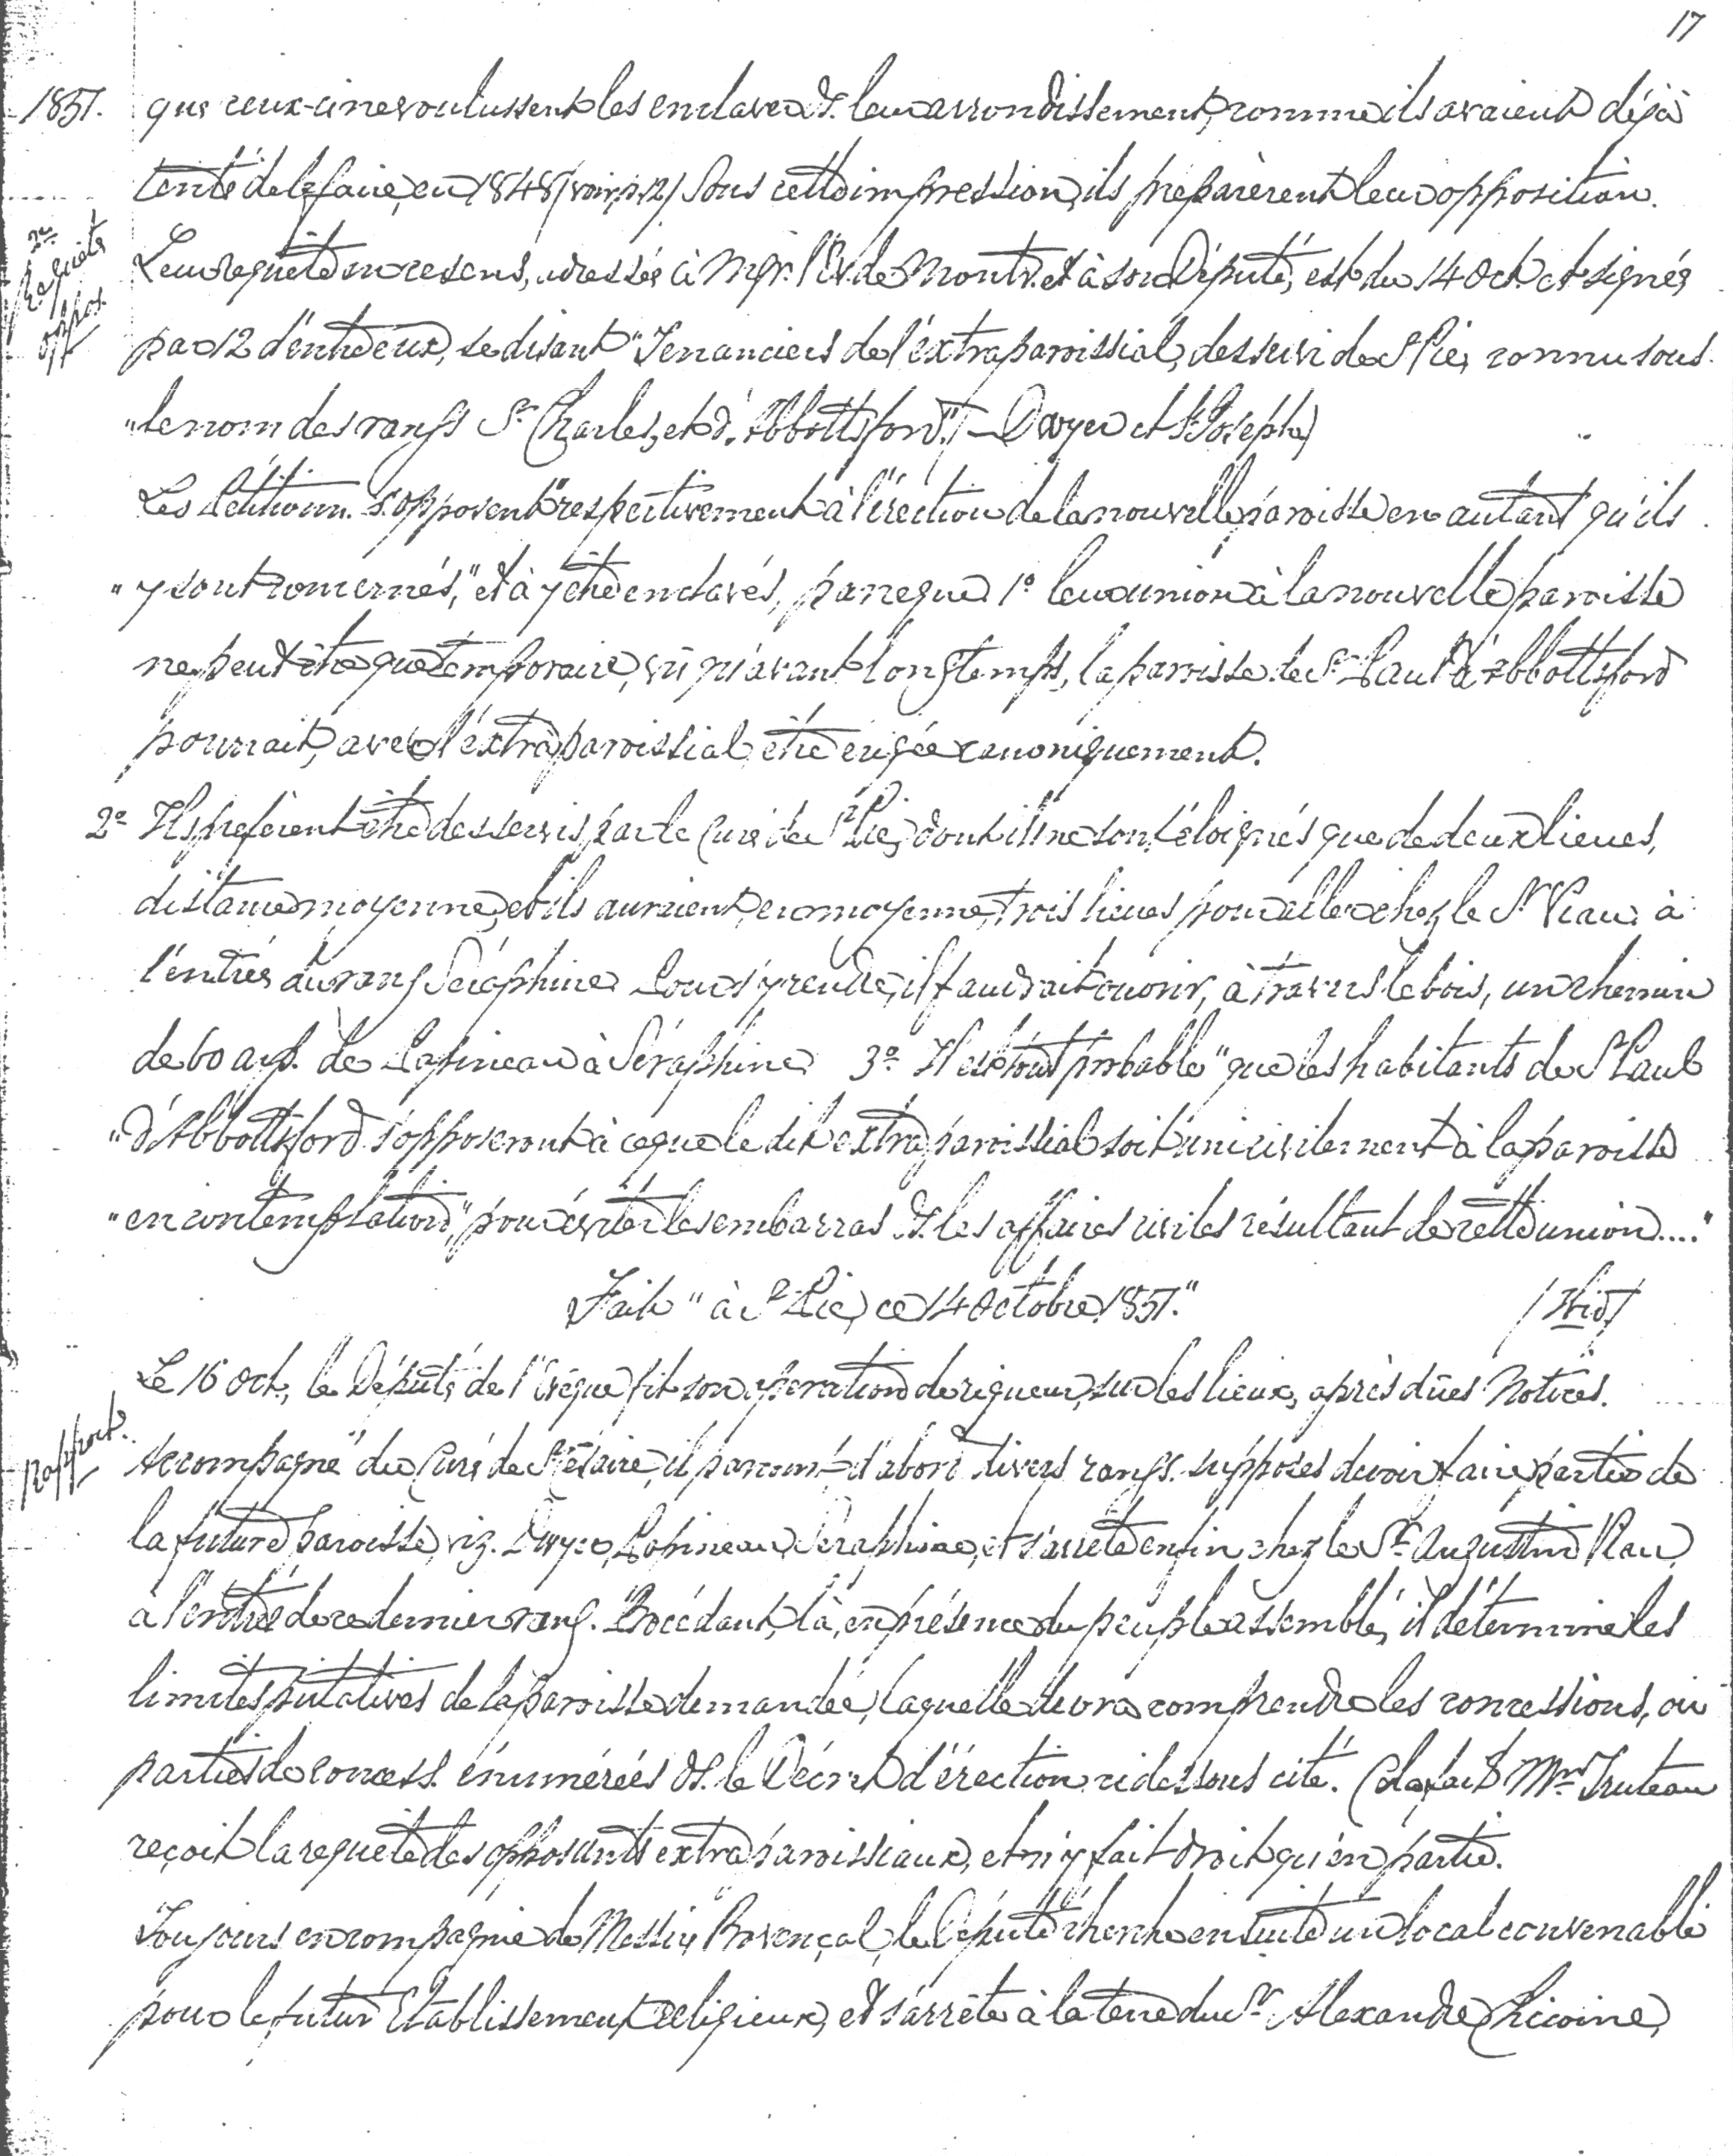 17
1857. que ceux-ci ne voulussent les enclaver ds. leur arrondissement, comme ils avaient déjà
tenté de le faire, en 1848 (voir p. 12) Sous cette impression, ils préparèrent leur opposition.
2de Requête oppos.
Leur requête en ce sens, adressée à Mgr. l'Ev. de Montr. et à son Député, est du 14 Oct. et signée
par 12 d'entre eux, se disant "Tenanciers de l'extraparoissial, desservi de St Pie, connu sous
"le nom des rangs St Charles, et d'Abbottsford." (- Dwyer et St Joseph)
Les Pétitionn. s'opposent "respectivement à l'érection de la nouvelle paroisse en autant qu'ils
"y sont concernés," et à y être enclavés, parceque 1o leur union à la nouvelle paroisse
ne peut être que temporaire, vû qu'avant longtemps, la paroisse de St Paul d'Abbottsford
pourrait, avec l'extraparoissial, être érigée canoniquement.
2o Ils préfèrent être desservis par le Curé de St Pie, dont ils ne sont éloignés que de deux lieues,
distance moyenne, et ils auraient, en moyenne, trois lieues pour aller chez le Sr Viau, à
l'entrée du rang Séraphine. Pour s'y rendre, il faudrait ouvrir, à travers le bois, un chemin
de 60 arp. de Papineau à Séraphine. 3o Il est tout probable "que les habitants de St Paul
"d'Abbottsford s'opposeront à ce que le dit extraparoissial soit uni civilement à la paroisse
"en contemplation," pour éviter les embarras ds. les affaires civiles résultant de cette union...."
Fait "à St Pie, ce 14 Octobre 1857." (Ibid)
Le 16 Oct, le Député de l'Evêque fit son opération de rigueur, sur les lieux, après dûes Notices.
Rapport.
Accompagné du Curé de St Césaire, il parcourt d'abord divers rangs supposés devoir faire partie de
la future paroisse, viz. Dwyer, Papineau, Séraphine, et s'arrête enfin chez le Sr Augustin Viau,
à l'entrée de ce dernier rang. Procédant, là, en présence du peuple assemblé, il détermine les
limites putatives de la paroisse demandée, laquelle devra comprendre les concessions, ou
parties de concess. énumérées ds. le Décret d'érection ci dessous cité. Cela fait Mr Truteau
reçoit la requête des opposants extraparoissiaux, et n'y fait droit qu'en partie.
Toujours en compagnie de Messire Provençal, le Député cherche ensuite un local convenable
pour le futur Etablissement religieux, et s'arrête à la terre du Sr Alexandre Chicoine,